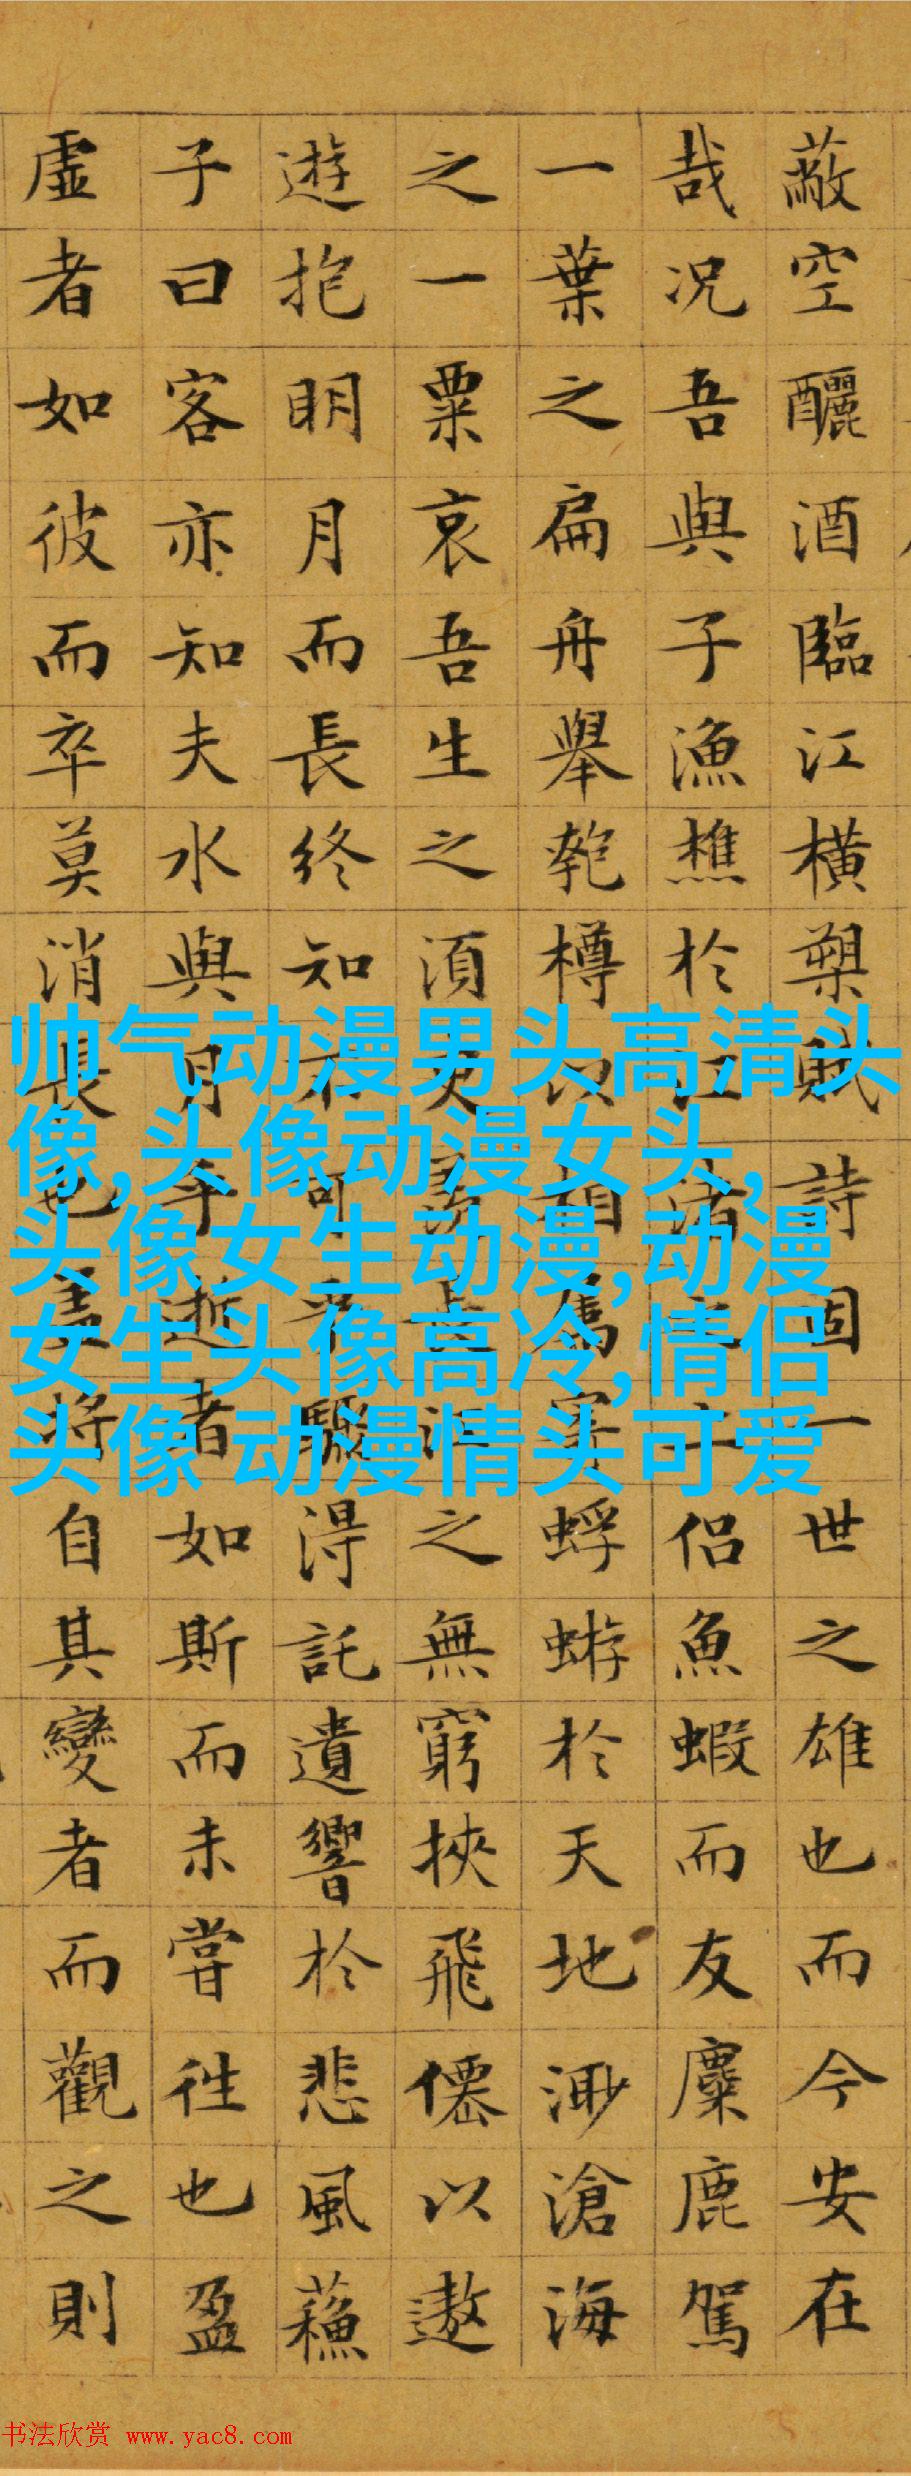 蔽空釃酒臨江橫槊賦詩固一世之雄也而今安在
哉况吾與子漁樵於江渚之上侶魚蝦而友麋鹿駕
一葉之扁舟舉匏樽以相屬寄蜉蝣於天地渺滄海
之一粟哀吾生之須臾羨長江之無窮挾飛僊以遨
遊抱明月而長終知不可乎驟得託遺響於悲風蘇
子曰客亦知夫水與月乎逝者如斯而未嘗往也盈
虛者如彼而卒莫消長也盖將自其變者而觀之則
帅气动漫男头高清头
像,头像动漫女头,
头像女生动漫,动漫
女生头像高冷,情侣
头像 动漫情头可爱
书法欣赏 www.yac8.com